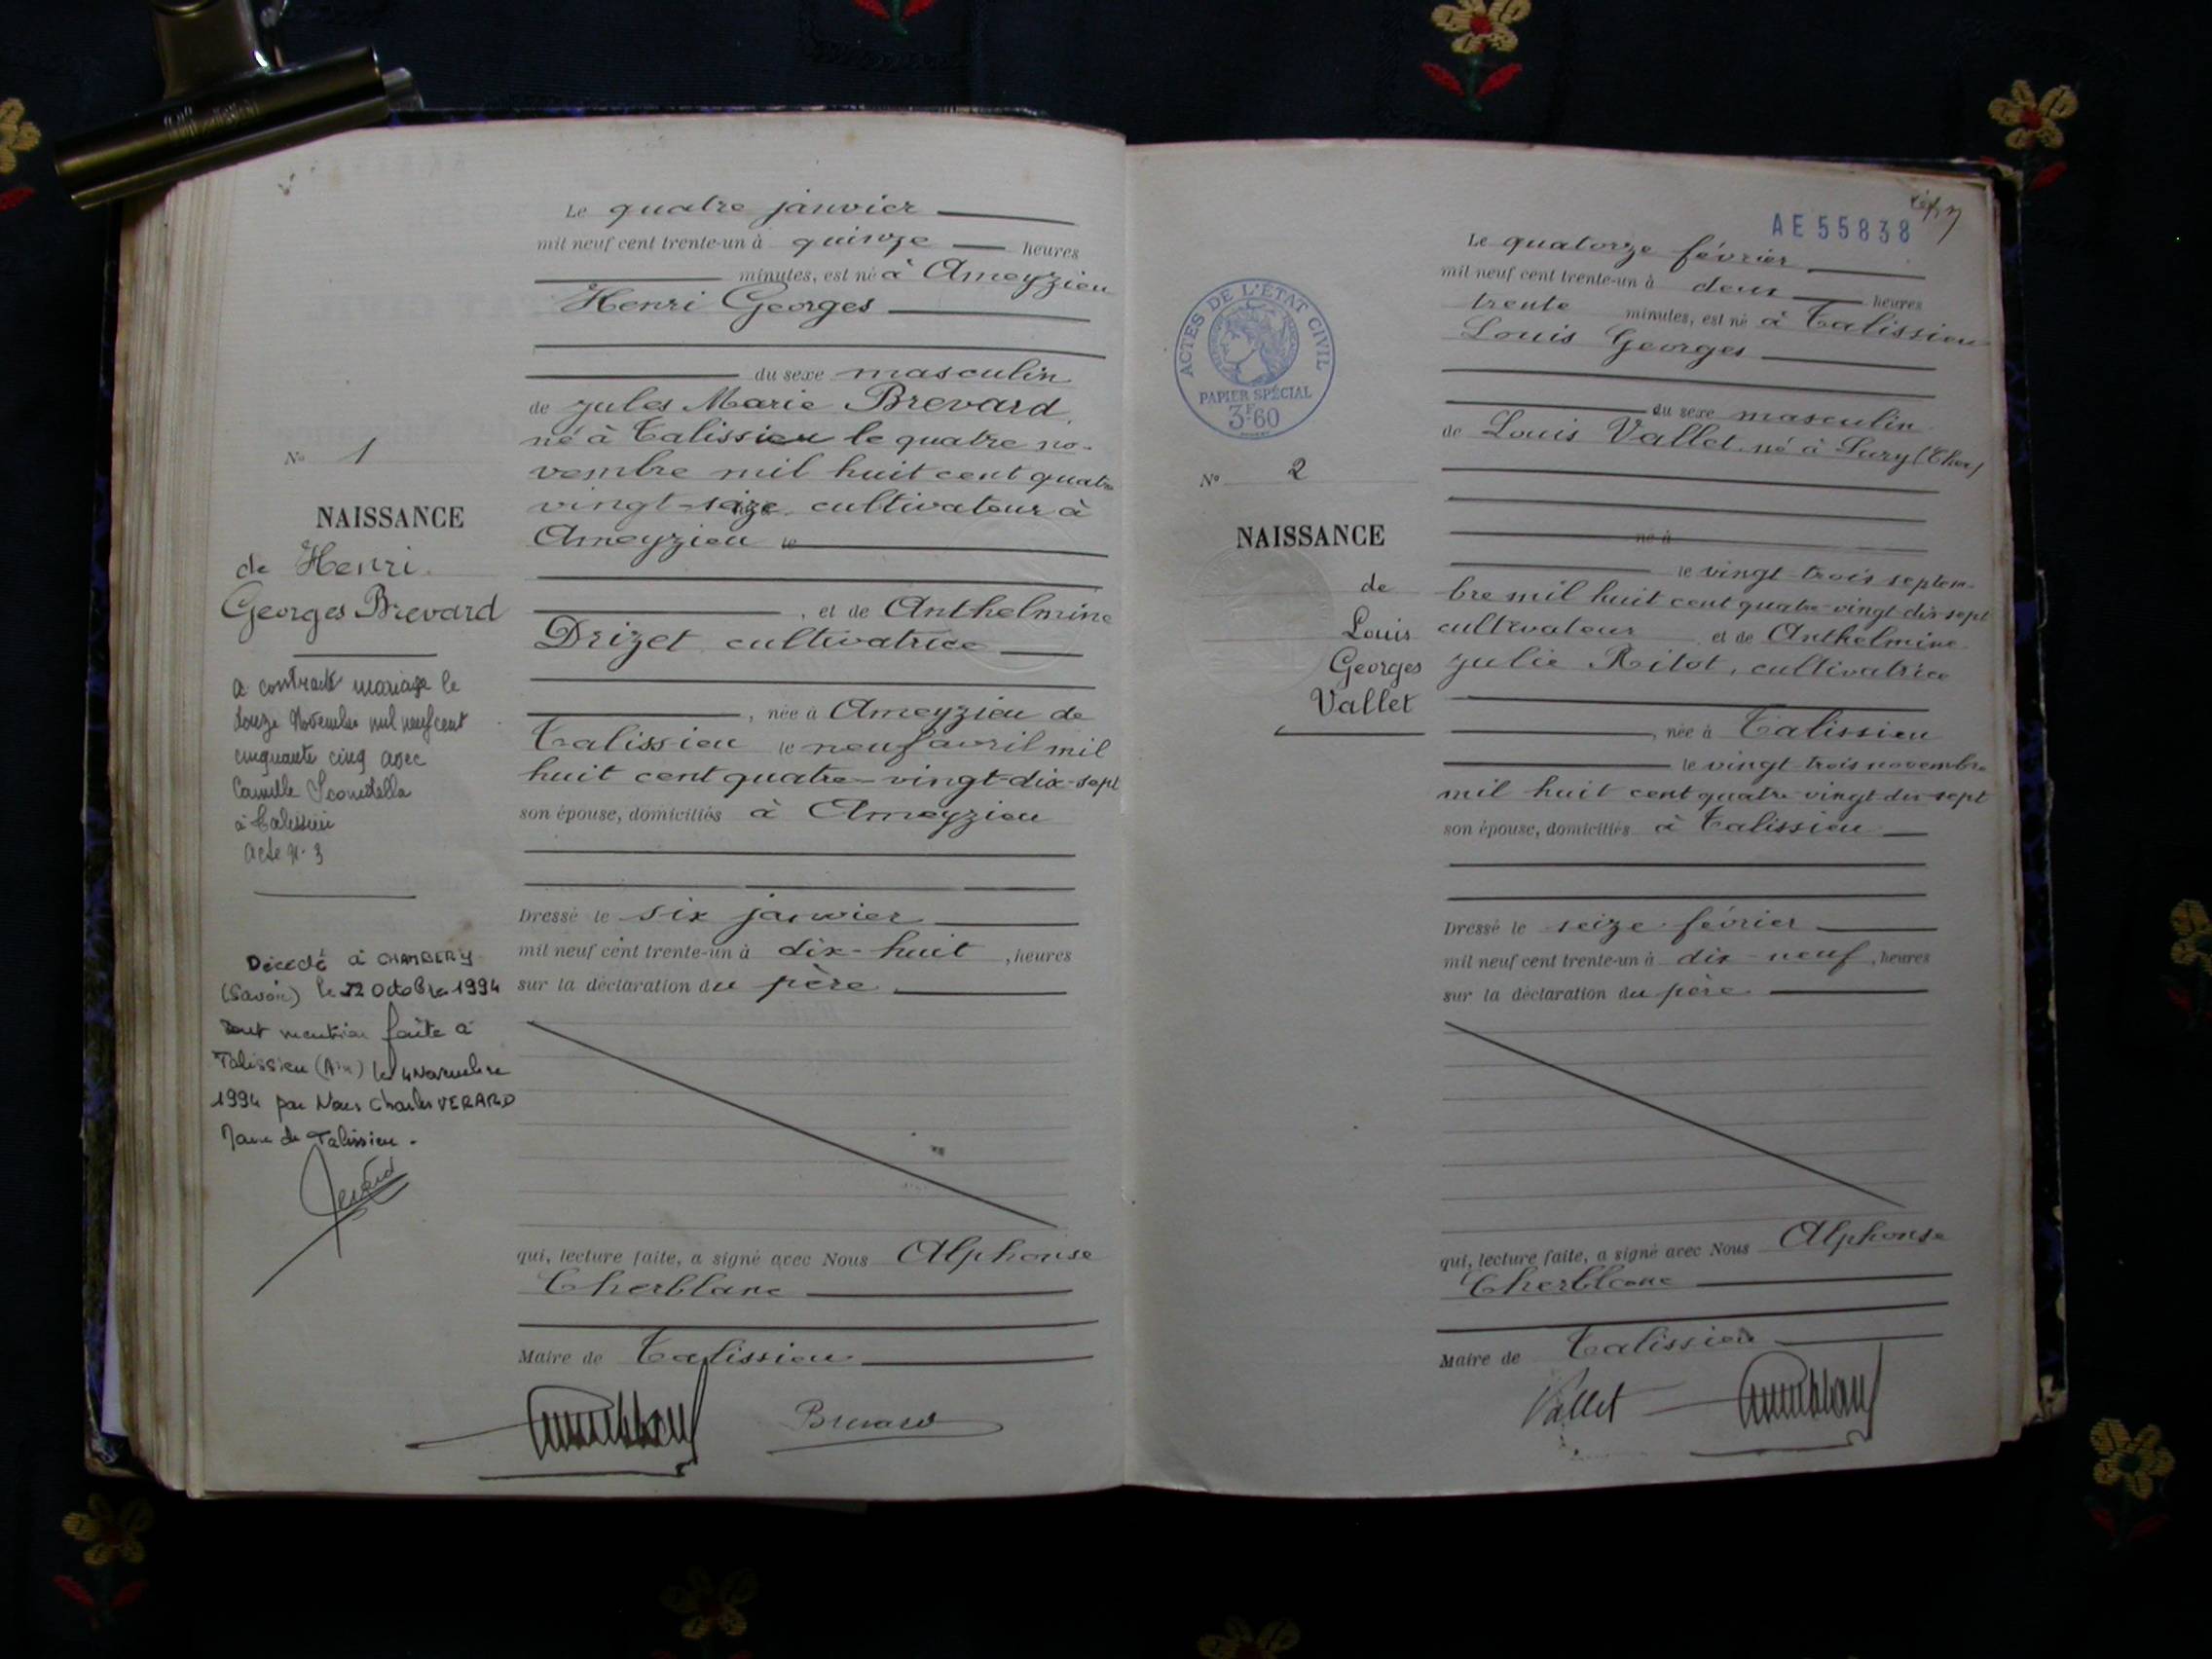 Le quatre janvier
mil neuf cent trente-un à quinze heures
minutes, est né à Ameyzieu
Henri Georges
du sexe masculin
de Jules Marie Brevard,
né à Talissieu le quatre no-
vembre mil huit cent quatre
vingt-seize cultivateur à
Ameyzieu le
, et de Anthelmine
Drizet cultivatrice
, née à Ameyzieu de
Talissieu le neuf avril mil
huit cent quatre-vingt-dix-sept
son épouse, domiciliés à Ameyzieu
Dressé le six janvier
mil neuf cent trente-un à dix-huit, heures
sur la déclaration du père
qui, lecture faite, a signé avec Nous Alphonse
Cherblanc
Maire de Talissieu
Brevard
No 1
NAISSANCE
de Henri
Georges Brevard
a contracté mariage le
douze Novembre mil neuf cent
cinquante cinq avec
Camille
à Talissieu
acte N. 3
Décédé à CHAMBERY
(Savoie) le 22 Octobre 1994
mention faite à
Talissieu (Ain) le 4 Novembre
1994 par Nous Charles VERARD
Maire de Talissieu.
AE 55838
Le quatorze février
mil neuf cent trente-un à deux heures
trente minutes, est né à Talissieu
Louis Georges
du sexe masculin
de Louis Vallet né à Sury (Cher)
né à
le vingt-trois septem-
bre mil huit cent quatre-vingt-dix-sept
cultivateur et de Anthelmine
Julie Ritot, cultivatrice
, née à Talissieu
le vingt-trois novembre
mil huit cent quatre-vingt-dix-sept
son épouse, domiciliés à Talissieu
Dressé le seize février
mil neuf cent trente-un à dix-neuf, heures
sur la déclaration du père
qui, lecture faite, a signé avec Nous Alphonse
Cherblanc
Maire de Talissieu
Vallet
ACTES DE L'ÉTAT CIVIL
PAPIER SPÉCIAL
3F60
No 2
NAISSANCE
de
Louis
Georges
Vallet